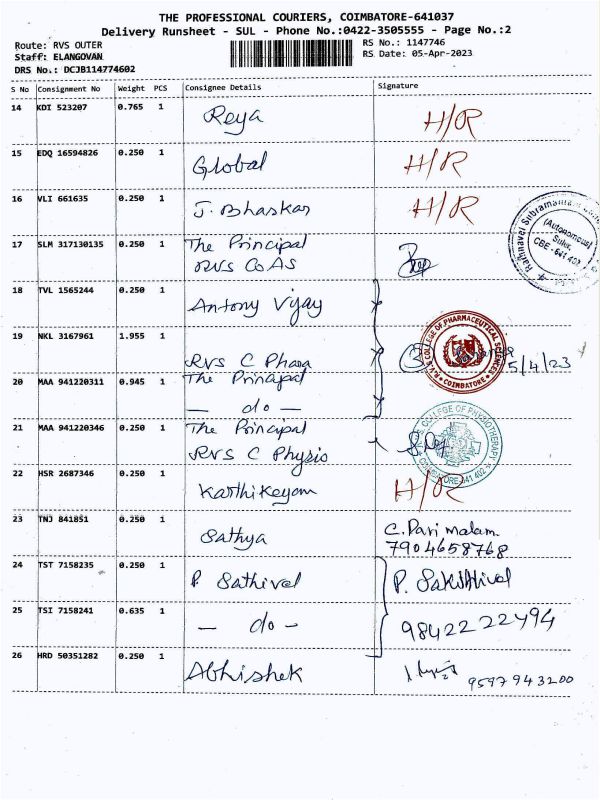 THE PROFESSIONAL COURIERS, COIMBATORE-641037
Delivery Runsheet - SUL - Phone No.:0422-3505555 - Page No.:2
Route: RVS OUTER
RS No.: 1147746
Staff: ELANGOVAN
RS Date: 05-Apr-2023
DRS No.: DCJB114774602
S No Consignment No Weight PCS Consignee Details Signature
14 KDI 523207 0.765 1 Reya H/R
15 EDQ 16594826 0.250 1 Global H/R
16 VLI 661635 0.250 1 J. Bhaskar H/R
17 SLM 317130135 0.250 1 The Principal
RVS CoAS
(Autonomous)
Sulur,
CBE - 641 402
18 TVL 1565244 0.250 1 Antony Vijay
19 NKL 3167961 1.955 1
RVS C Phara
R.V.S. COLLEGE OF PHARMACEUTICAL SCIENCES
COIMBATORE
5/4/23
20 MAA 941220311 0.945 1 The Principal
— do —
21 MAA 941220346 0.250 1 The Principal
RVS C Physio
COLLEGE OF PHYSIOTHERAPY
COIMBATORE 641 402
22 HSR 2687346 0.250 1 Karthikeyan H/R
23 TNJ 841851 0.250 1 Sathya C. Parimalam
7904658768
24 TST 7158235 0.250 1 P. Sathivel P. Sakthivel
25 TSI 7158241 0.635 1 — do — 9842222494
26 HRD 50351282 0.250 1 Abhishek 9597943200